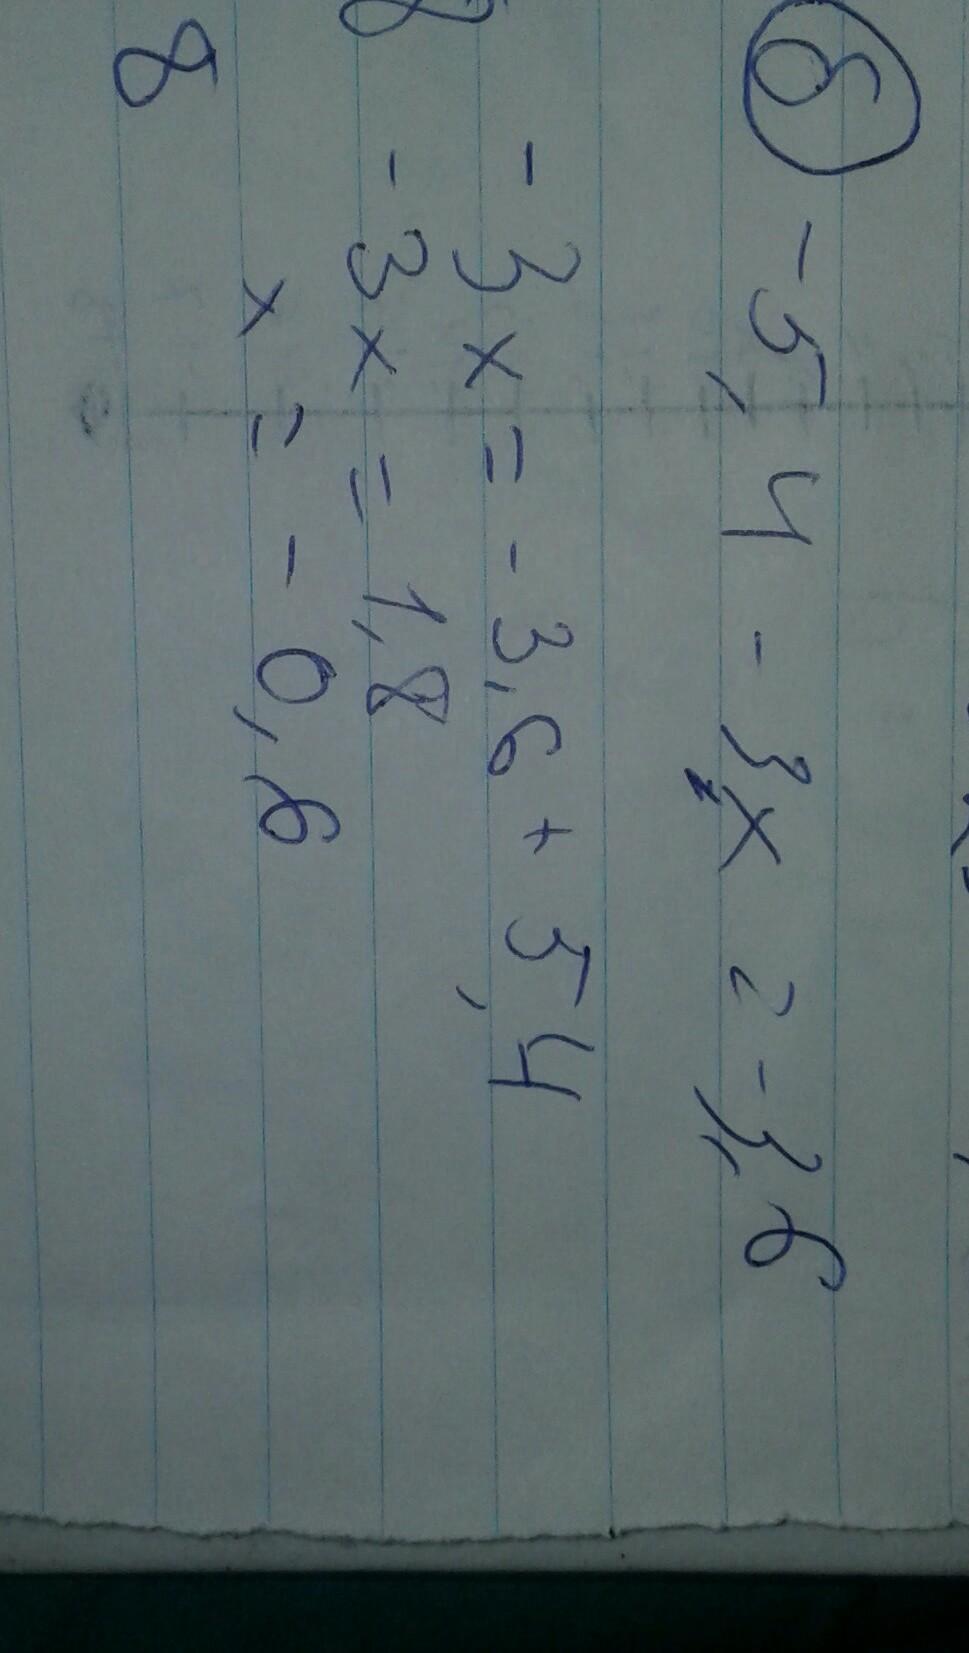 б -5,4 - 3x = -3,6
-3x = -3,6 + 5,4
8 -3x = 1,8
x = -0,6
8